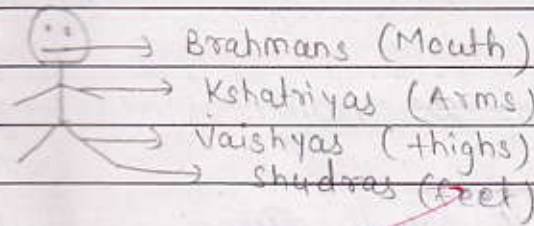 Brahmans (Mouth)
Kshatriyas (Arms)
Vaishyas (thighs)
Shudras (feet)